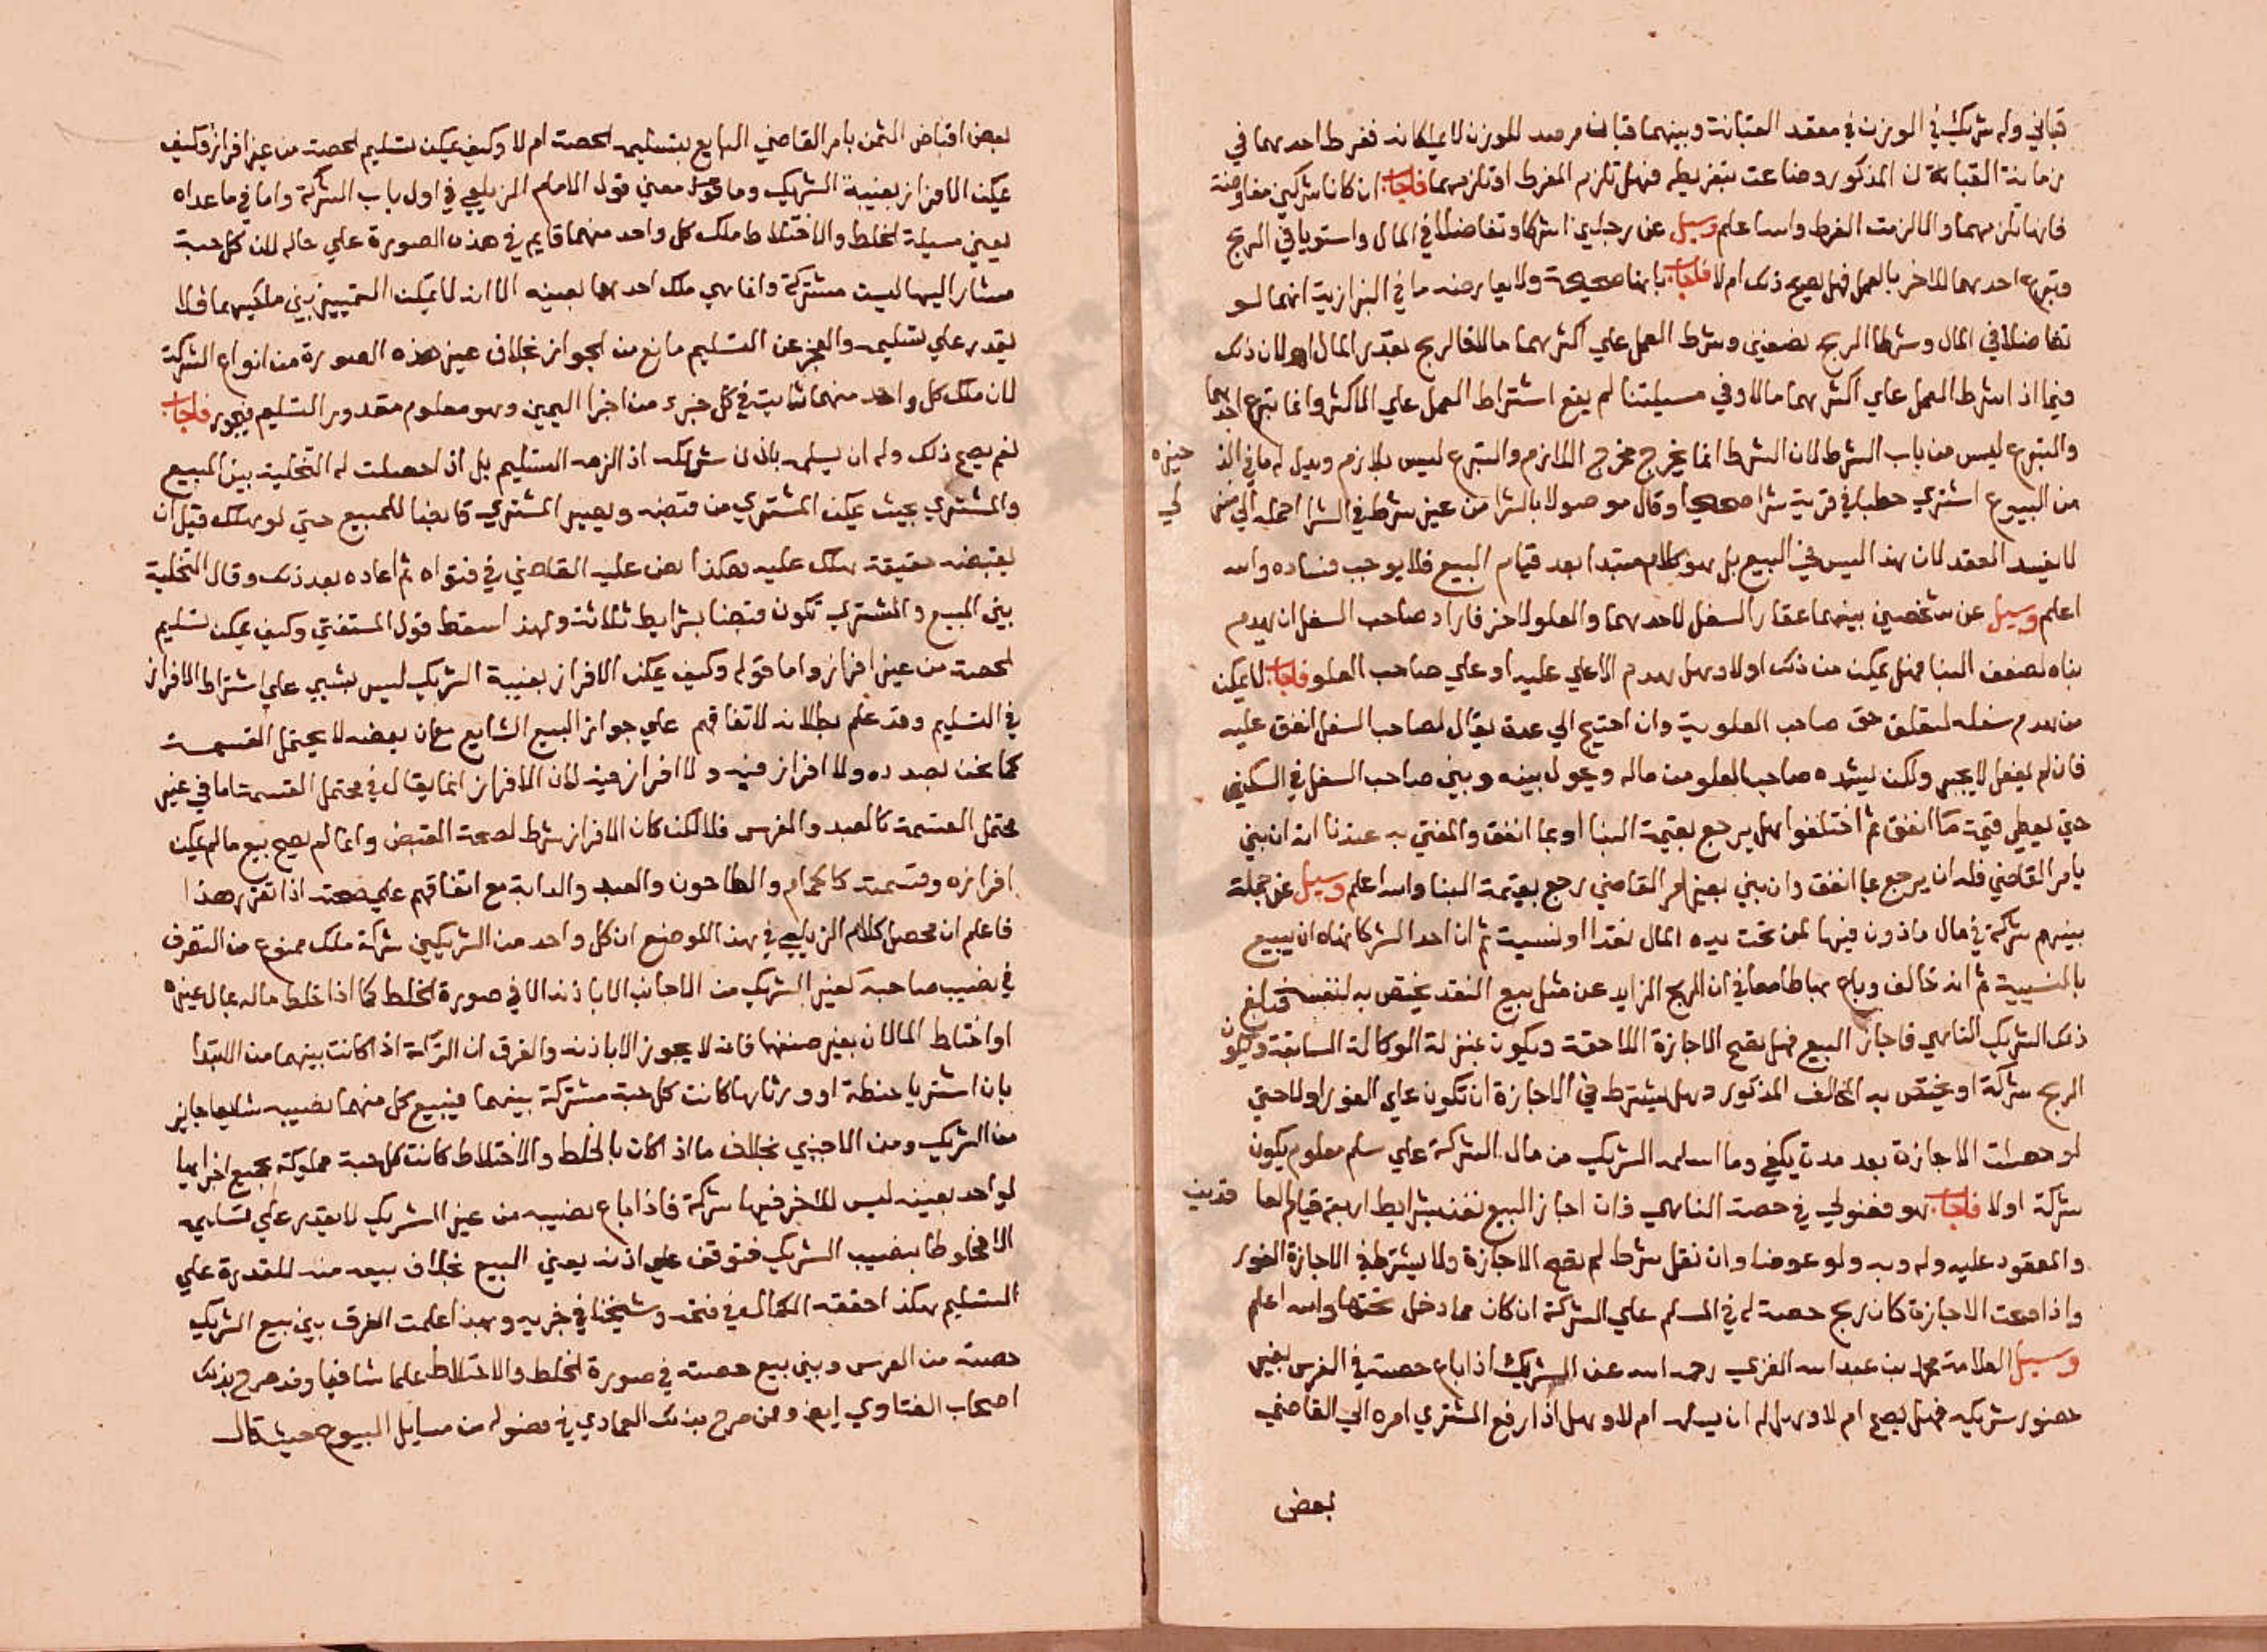 قباني وله شريك في الوزن في مقعد القبانة وبينهما قبان مرصد للوزن لا يملكانه ففرط احدهما في
زمانة القبانة ان المذكور وضاعت بتفريطه فهل تلزم المفرط او تلزمهما فاجاب ان كانا شريكين مفاوضة
فانها تلزمهما والا لزمت المفرط والله اعلم وسيل عن رجلين اشتركا وتفاضلا في المال واستويا في الربح
وتبرع احدهما للاخر بالعمل فهل يصح ذلك ام لا فاجاب بانها صحيحة ولا يعارضه ما في البزازية انهما لو
تفاضلا في المال وشرطا الربح نصفين وشرط العمل علي اكثرهما مالا فالربح بقدر المال اهـ لان ذلك
فيما اذا شرط العمل علي اكثرهما مالا وفي مسيلتنا لم يقع اشتراط العمل علي الاكثر وانما تبرع احدهما
والتبرع ليس من باب الشرط لان الشرط انما يخرج مخرج اللازم والتبرع ليس بلازم ويدل له ما في الذخيره
من البيوع اشتري حطبا في قرية شرا صحيحا وقال موصولا بالشرا من غير شرط في الشرا احمله الي منزلي
لا يفسد العقد لان هذا ليس في البيع بل هو كلام مبتدا بعد قيام البيع فلا يوجب فساده والله
اعلم وسيل عن شخصين بينهما عقار السفل لاحدهما والعلو لاخر فاراد صاحب السفل ان يهدم
بناه لضعف البنا فهل يمكن من ذلك اولا وهل يهدم الاعلي عليه او علي صاحب العلو فاجاب لا يمكن
من هدم سفله لتعلق حق صاحب العلو به وان احتيج الي هدمه يقال لصاحب السفل انفق عليه
فان لم يفعل لا يجبر ولكن يبنيه صاحب العلو من ماله ويحول بينه وبين صاحب السفل في السكني
حتي يعطي قيمة ما انفق ثم اختلفوا هل يرجع بقيمة البنا او بما انفق والمفتي به عندنا انه ان بني
بامر القاضي فله ان يرجع بما انفق وان بني بغير امر القاضي رجع بقيمة البنا والله اعلم وسيل عن جملة
بينهم شركة في مال ماذون فيها لمن تحت يده المال نقدا او نسيئة ثم ان احد الشركا نهاه ان يبيع
بالنسيية ثم انه خالف وباع بها طامعا في ان الربح الزايد عن مثل بيع النقد يختص به لنفسه فبلغ
ذلك الشريك الناهي فاجاز البيع فهل تصح الاجازة اللاحقة ويكون بمنزلة الوكالة السابقة ويكون
الربح شركة او يختص به المخالف المذكور وهل يشترط في الاجازة ان تكون علي الفور اولا حتي
لو حصلت الاجازة بعد مدة يكفي وما اسلمه الشريك من مال الشركة علي سلم معلوم يكون
شركة اولا فاجاب هو فضولي في حصة الناهي فان اجاز البيع نفذ بشرايط اربعة قيام العاقدين
والمعقود عليه وله وبه ولو عوضا وان نقل شرط لم تصح الاجازة ولا يشترط في الاجازة الفور
واذا صحت الاجازة كان ربح حصته له في المسلم علي الشركة ان كان مما دخل تحتها والله اعلم
وسيل العلامة محمد بن عبد الله الغزي رحمه الله عن الشريك اذا باع حصته في الفرس بغير
حضور شريكه فهل يصح ام لا وهل له ان يسلمه ام لا وهل اذا رفع المشتري امره الي القاضي
بعض
بعض اقباض الثمن بامر القاضي البايع بتسليمه الحصة ام لا وكيف يمكن تسليم الحصة من غير افراز وكيف
يمكن الافراز بغيبة الشريك وما معني قول الامام الزيلعي في اول باب الشركة واما في ما عداه
يعني مسيلة الخلط والاختلاط ملك كل واحد منهما قايم في هذه الصورة علي حاله لان كل حبة
مشار اليها ليست مشتركة وانما هي ملك احدهما بعينه الا انه لا يمكن التمييز بين ملكيهما فلا
يقدر علي تسليمه والعجز عن التسليم مانع من الجواز بخلاف غير هذه الصورة من انواع الشركة
لان ملك كل واحد منهما ثابت في كل جزء من اجزا العين وهو معلوم مقدور التسليم فيجوز فاجاب
نعم يصح ذلك وله ان يسلمه باذن شريكه اذ الزمه التسليم بل اذا حصلت له التخلية بين المبيع
والمشتري بحيث يمكن المشتري من قبضه ويصير المشتري قابضا للمبيع حتي لو هلك قبل ان
يقبضه حقيقة هلك عليه هكذا نص عليه القاضي في فتواه ثم اعاده بعد ذلك وقال التخلية
بين المبيع والمشتري تكون قبضا بشرايط ثلاثة ولهذا سقط قول المستفتي وكيف يمكن تسليم
الحصة من غير افراز واما قوله وكيف يمكن الافراز بغيبة الشريك ليس بشي علي اشتراط الافراز
في التسليم وقد علم بطلانه لاتفاقهم علي جواز البيع الشايع مع ان بعضه لا يحتمل القسمة
كما نحن بصدده ولا افراز فيه ولا افراز فيه لان الافراز انما يقال في محتمل القسمة اما في غير
محتمل القسمة كالعبد والفرس فلا لكن كان الافراز شرط لصحة القبض وانما لم يصح بيع ما لم يمكن
افرازه وقسمته كالحمام والطاحون والعبد والدابة مع اتفاقهم علي صحته اذا تقرر هذا
فاعلم ان محصل كلام الزيلعي في هذا الموضع ان كل واحد من الشريكين شركة ملك ممنوع من التصرف
في نصيب صاحبه لغير الشريك من الاجانب الا باذنه الا في صورة الخلط كما اذا خلط ماله بمال غيره
او اختلط المالان بغير صنعهما فانه لا يجوز الا باذنه والفرق ان الشركة اذا كانت بينهما من الابتدا
بان اشتريا حنطة او ورثاها كانت كل حبة مشتركة بينهما فيبيع كل منهما نصيبه شايعا جايز
من الشريك ومن الاجنبي بخلاف ما اذا كان بالخلط والاختلاط كانت كل حبة مملوكة بجميع اجزايها
لواحد بعينه ليس للاخر فيها شركة فاذا باع نصيبه من غير الشريك لا يقدر علي تسليمه
الا مخلوطا بنصيب الشريك فتوقف علي اذنه يعني البيع بخلاف بيعه منه للقدرة علي
التسليم هكذا حققه الكمال في فتحه وشيخنا في بحره وبهذا علمت الفرق بين بيع الشريك
حصته من الفرس وبين بيع حصته في صورة الخلط والاختلاط علما شافيا وقد صرح بذلك
اصحاب الفتاوي ايضا وممن صرح بذلك العمادي في فصوله من مسايل البيوع حيث قال